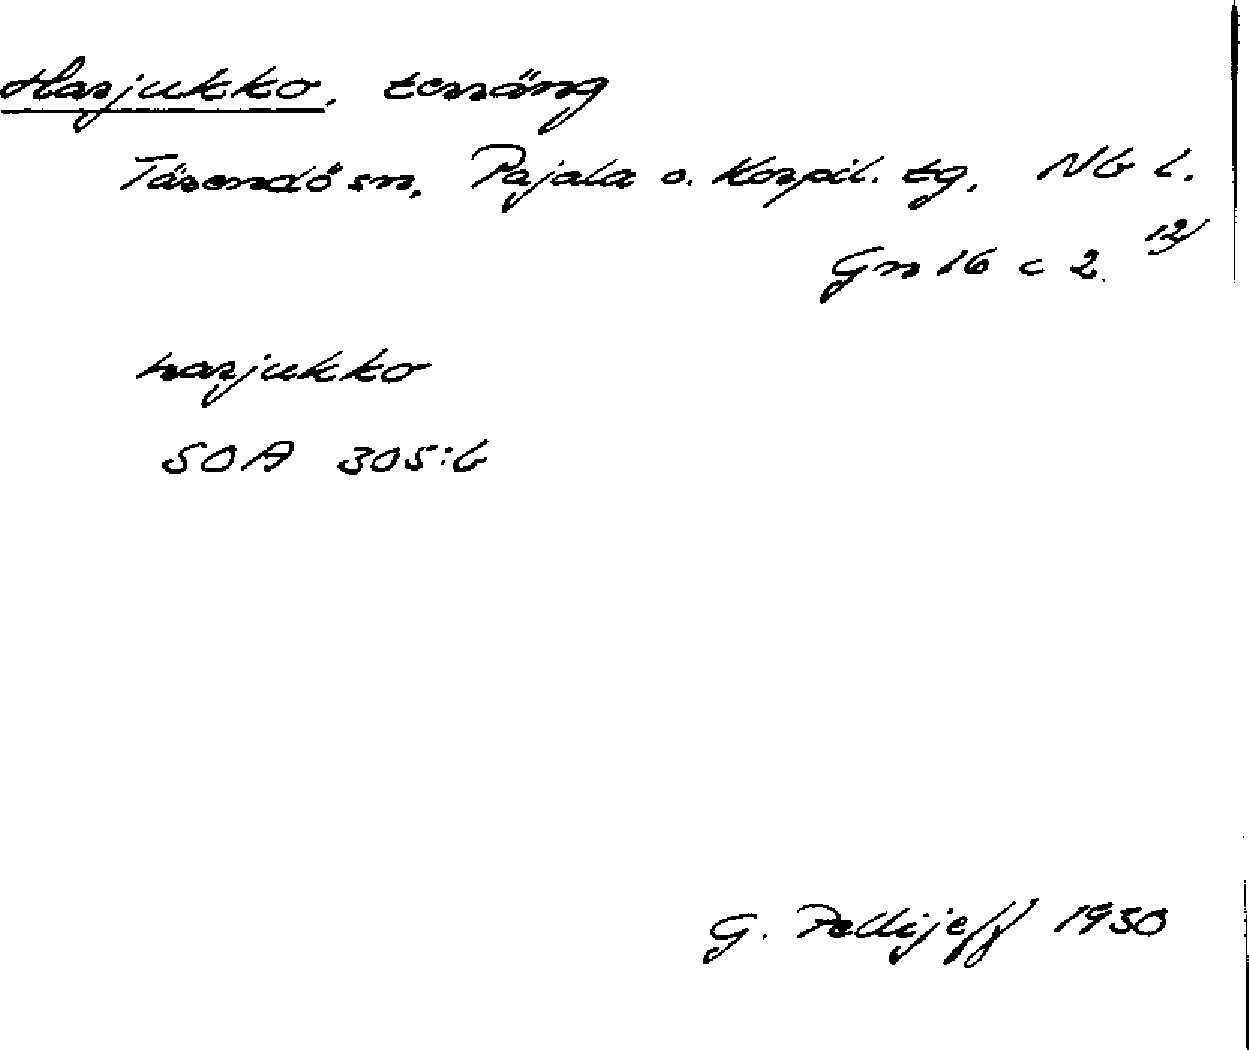 Harjukko, terräng
Tärendö sn, Pajala o. Korpil. tg, Nb l.
Gn 16 c 2 12/
harjukko
SOA 305:6
G. Pellijeff 1950